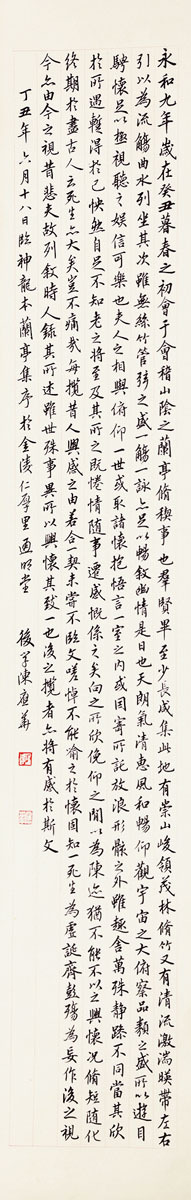 永和九年歲在癸丑暮春之初會于會稽山陰之蘭亭脩稧事也群賢畢至少長咸集此地有崇山峻領茂林脩竹又有清流激湍暎帶左右
引以為流觴曲水列坐其次雖無絲竹管弦之盛一觴一詠亦足以暢敘幽情是日也天朗氣清惠風和暢仰觀宇宙之大俯察品類之盛所以遊目
騁懷足以極視聽之娛信可樂也夫人之相與俯仰一世或取諸懷抱悟言一室之內或因寄所託放浪形骸之外雖趣舍萬殊靜躁不同當其欣
於所遇蹔得於己怏然自足不知老之將至及其所之既惓情隨事遷感慨係之矣向之所欣俛仰之閒以為陳迹猶不能不以之興懷況脩短隨化
終期於盡古人云死生亦大矣豈不痛哉每攬昔人興感之由若合一契未嘗不臨文嗟悼不能喻之於懷固知一死生為虛誕齊彭殤為妄作後之視
今亦由今之視昔悲夫故列敘時人錄其所述雖世殊事異所以興懷其致一也後之攬者亦將有感於斯文
丁丑年六月十八日臨神龍本蘭亭集序於金陵仁里明堂 後學陳應華